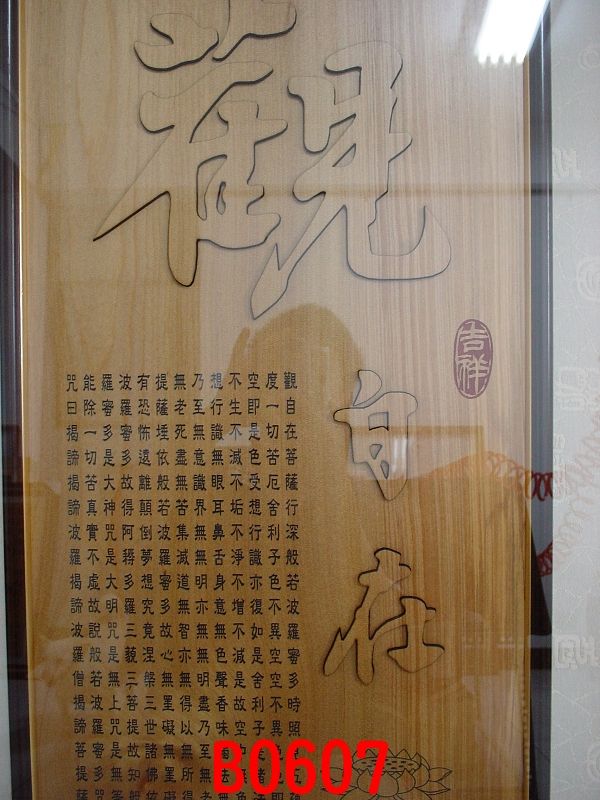 觀
自在
吉祥
觀自在菩薩行深般若波羅蜜多時照
度一切苦厄舍利子色不異空空不異
空即是色受想行識亦復如是舍利子是諸法
不生不滅不垢不淨不增不減是故空
想行識無眼耳鼻舌身意無色聲香味
乃至無意識界無無明亦無無明盡乃至無老
無老死盡無苦集滅道無智亦無得以無所得
提薩埵依般若波羅蜜多故心無罣礙無罣礙
有恐怖遠離顛倒夢想究竟涅槃三世諸佛依
波羅蜜多故得阿耨多羅三藐三菩提故知般
羅蜜多是大神咒是大明咒是無上咒是無等
能除一切苦真實不虛故說般若波羅蜜多咒
咒曰揭諦揭諦波羅揭諦波羅僧揭諦菩提薩
B0607